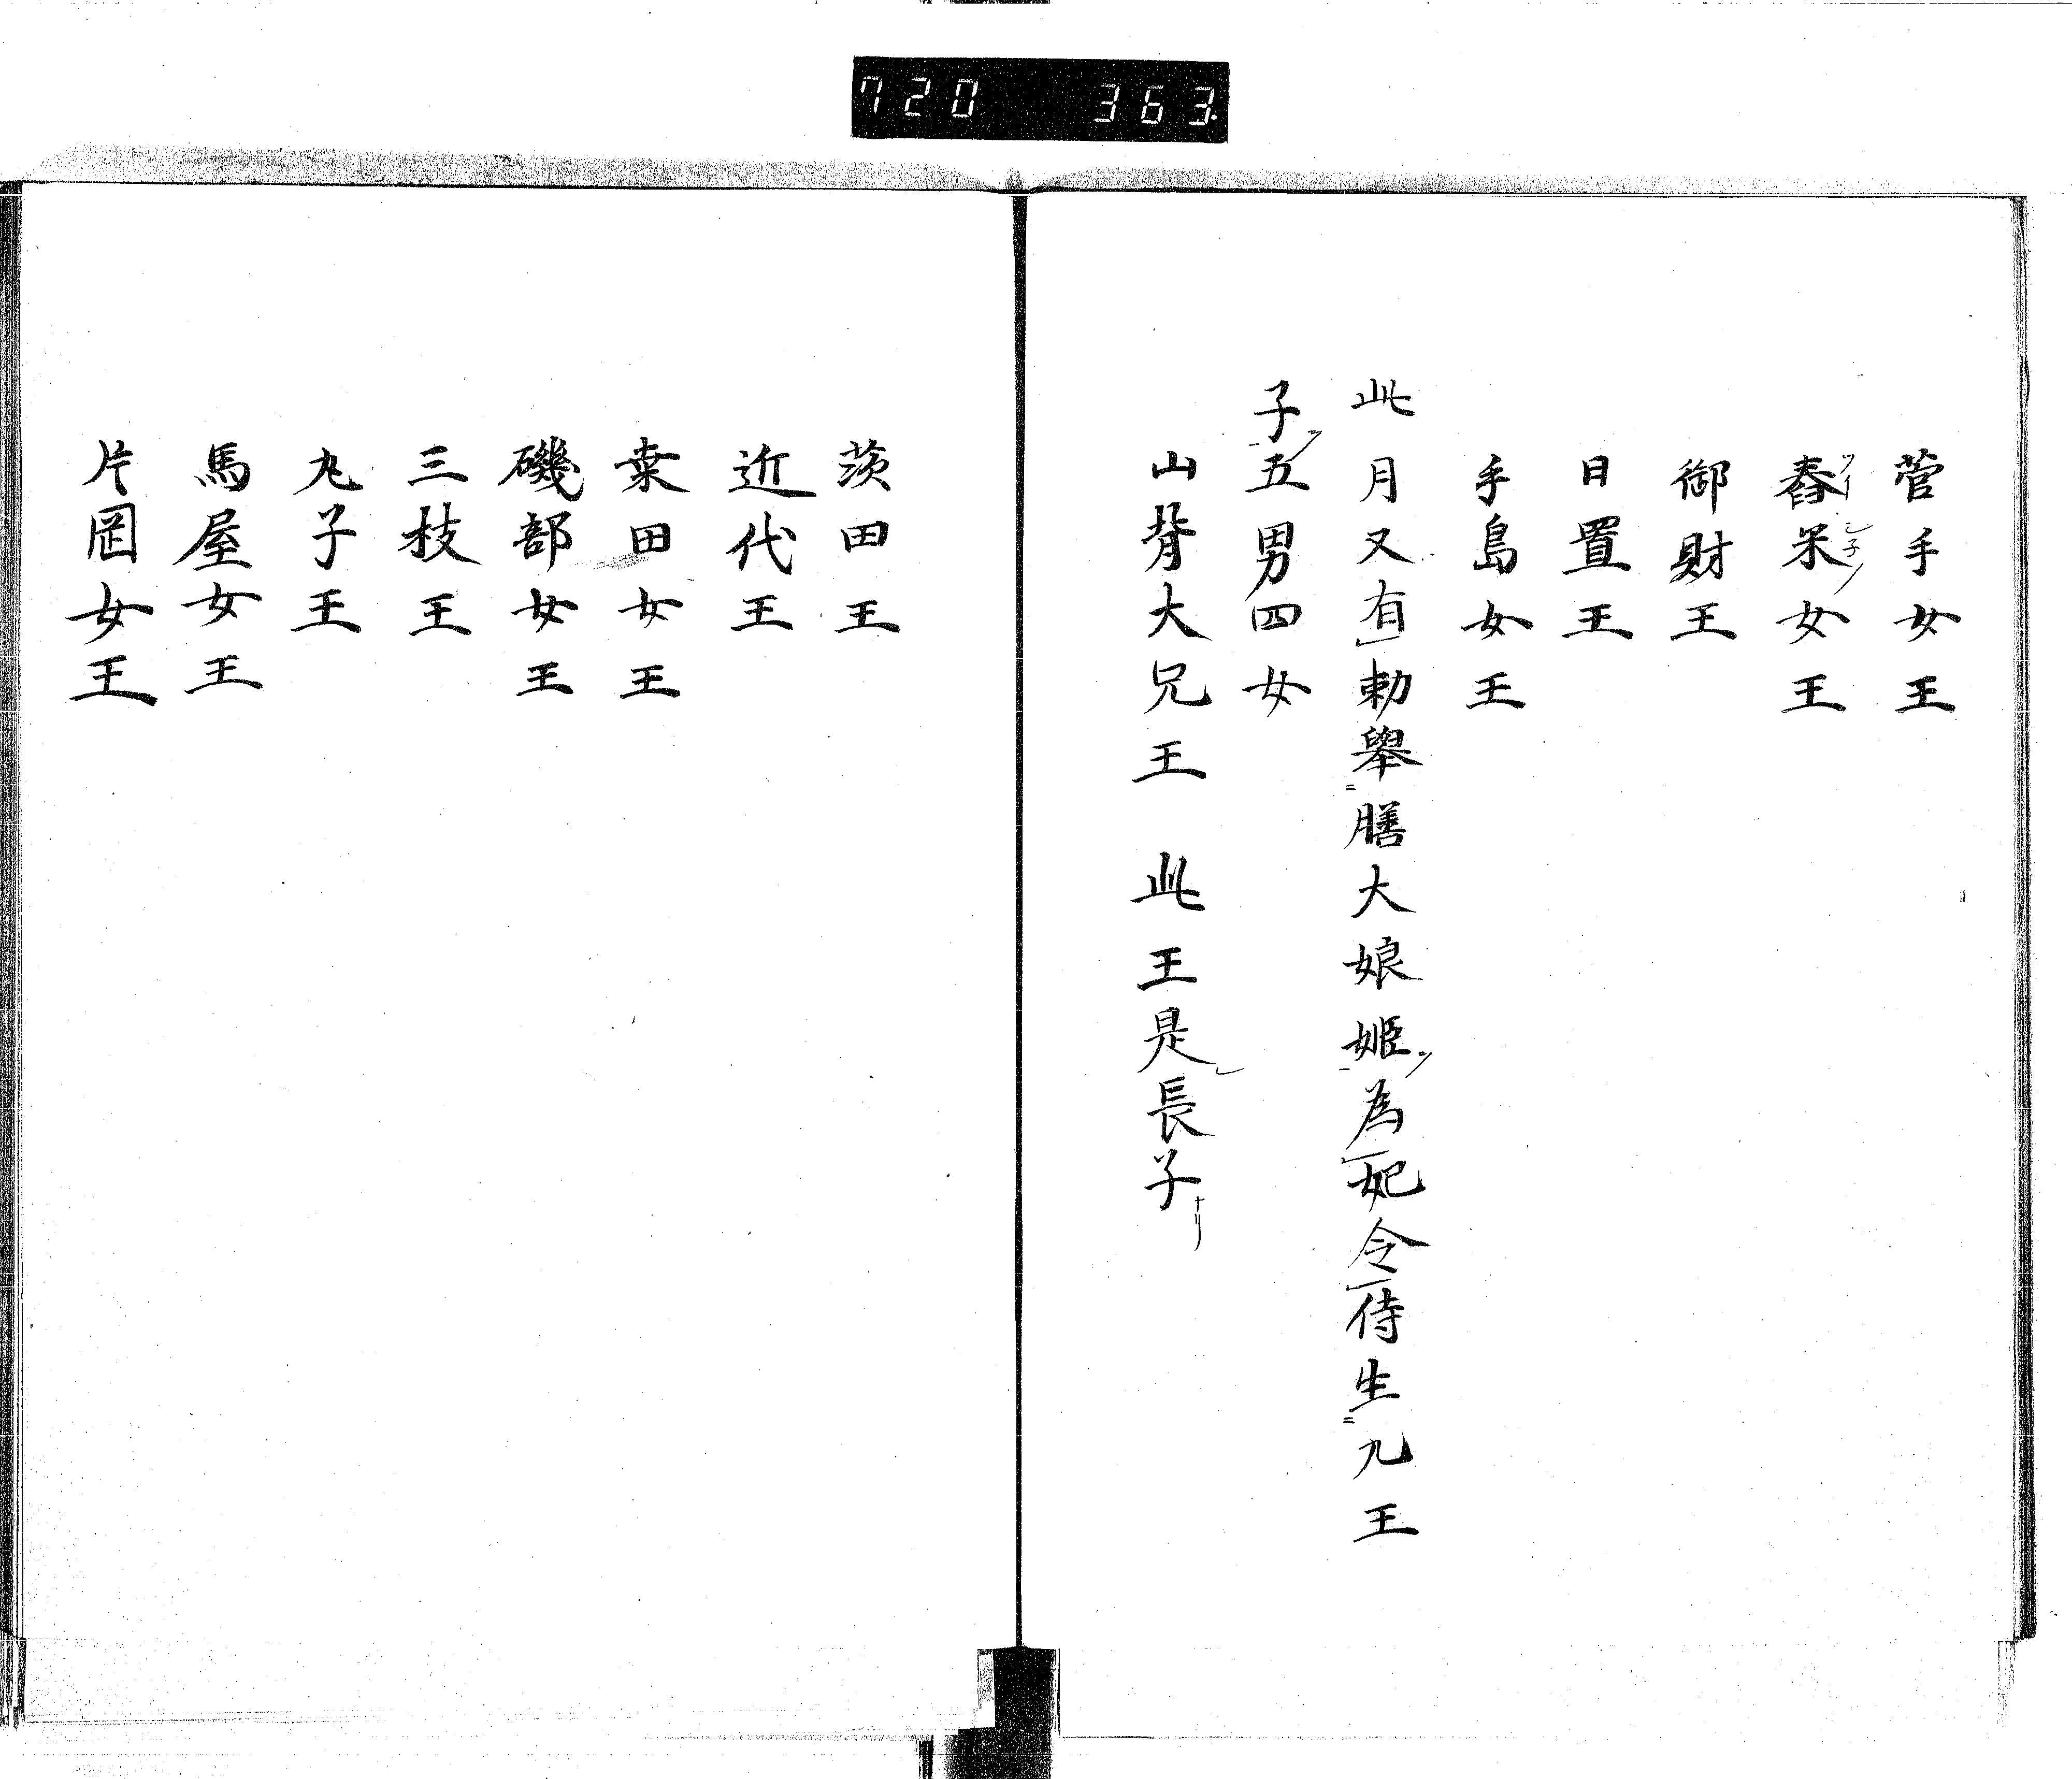 720 363
菅手女王
舂米女王
御財王
日置王
手島女王
此月又有勅舉膳大娘姫為妃令侍生九王
子五男四女
山背大兄王 此王是長子ナリ
茨田王
近代王
桒田女王
磯部女王
三枝王
丸子王
馬屋女王
片罡女王